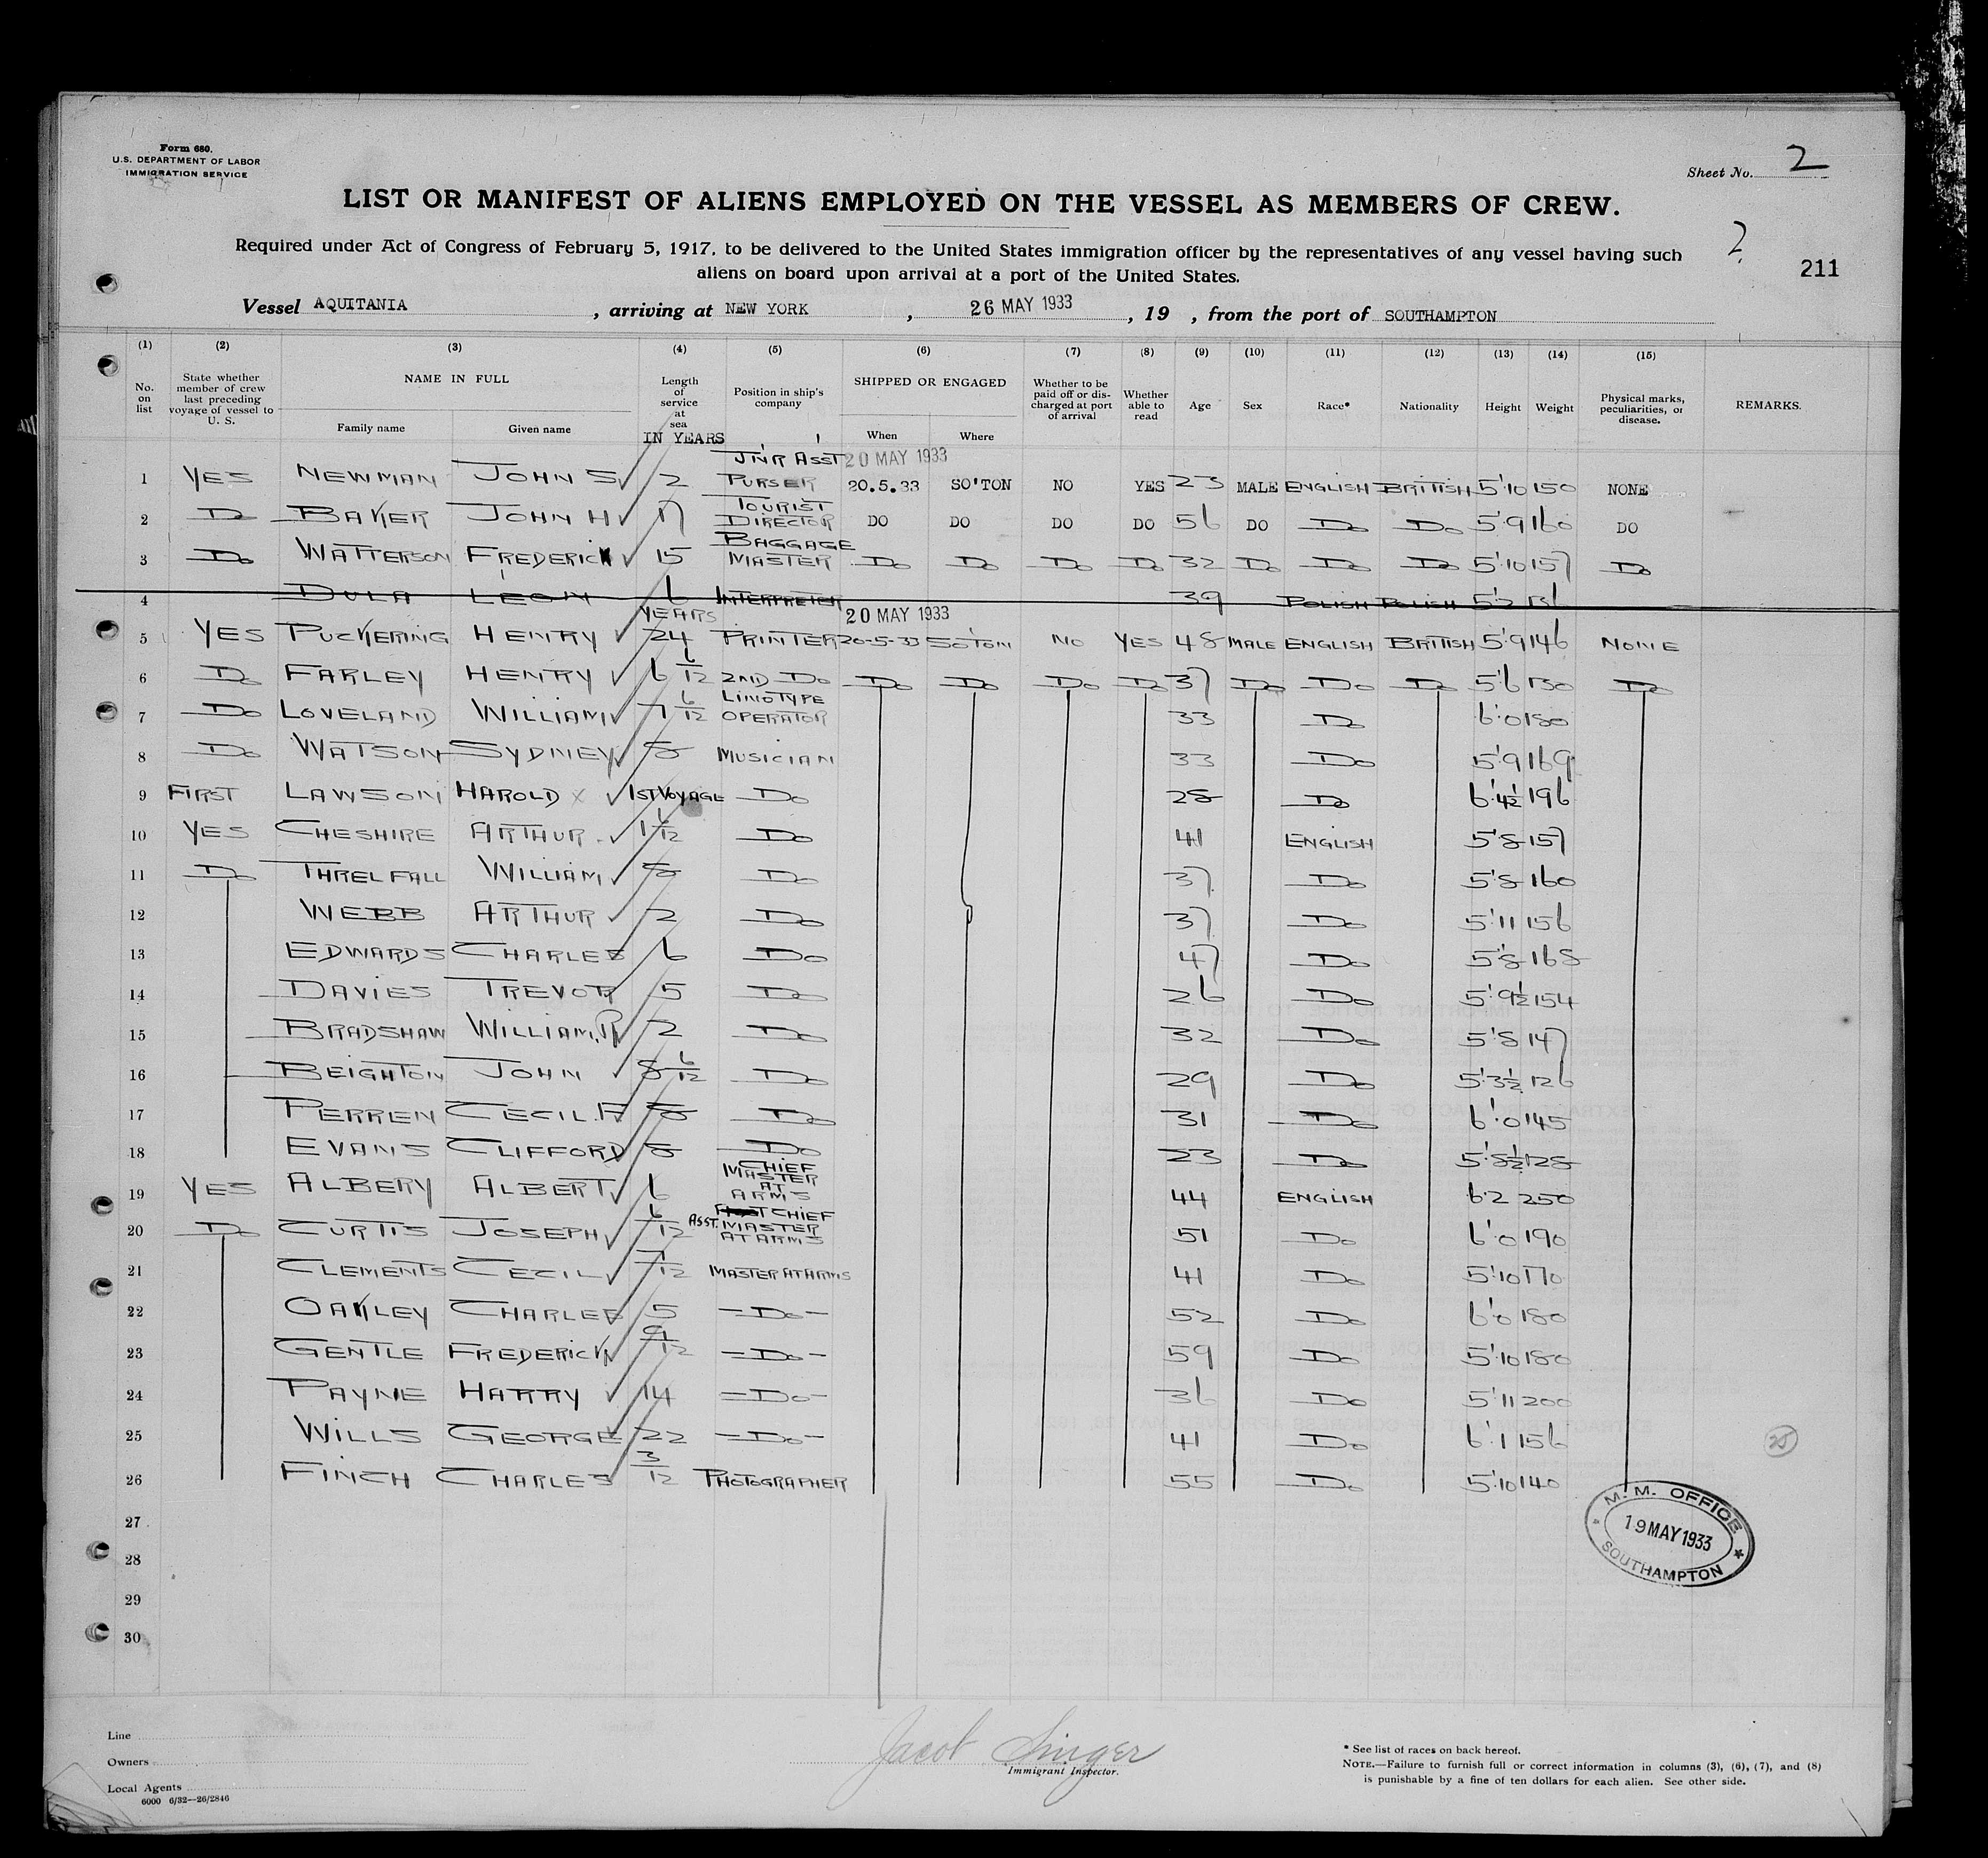 Form 680.
U.S. DEPARTMENT OF LABOR
IMMIGRATION SERVICE
Sheet No. 2
LIST OR MANIFEST OF ALIENS EMPLOYED ON THE VESSEL AS MEMBERS OF CREW.
Required under Act of Congress of February 5, 1917, to be delivered to the United States immigration officer by the representatives of any vessel having such
aliens on board upon arrival at a port of the United States.
2
211
Vessel AQUITANIA , arriving at NEW YORK , 26 MAY 1933 , 19 , from the port of SOUTHAMPTON
(1) (2) (3) (4) (5) (6) (7) (8) (9) (10) (11) (12) (13) (14) (15)
No. on list State whether member of crew last preceding voyage of vessel to U. S. NAME IN FULL Family name Given name Length of service at sea IN YEARS Position in ship's company SHIPPED OR ENGAGED When Where Whether to be paid off or discharged at port of arrival Whether able to read Age Sex Race* Nationality Height Weight Physical marks, peculiarities, or disease. REMARKS.
20 MAY 1933
1 YES NEWMAN JOHN S 2 JNR ASST PURSER 20.5.33 SO'TON NO YES 23 MALE ENGLISH BRITISH 5'10 150 NONE
2 Do BAKER JOHN H 17 TOURIST DIRECTOR DO DO DO DO 56 DO Do Do 5'9 160 DO
3 Do WATTERSON FREDERICK 15 BAGGAGE MASTER Do Do Do Do 32 Do Do Do 5'10 157 Do
4 DULA LEON 6 INTERPRETER 39 POLISH POLISH 5'2 136
YEARS 20 MAY 1933
5 YES PUCKERING HENRY 24 PRINTER 20-5-33 SO'TON NO YES 48 MALE ENGLISH BRITISH 5'9 146 NONE
6 Do FARLEY HENRY 6 6/12 2ND Do Do Do Do Do 37 Do Do Do 5'6 130 Do
7 Do LOVELAND WILLIAM 7 6/12 LINOTYPE OPERATOR 33 Do 6'0 180
8 Do WATSON SYDNEY 8 MUSICIAN 33 Do 5'9 169
9 FIRST LAWSON HAROLD X 1ST VOYAGE Do 28 Do 6'4½ 196
10 YES CHESHIRE ARTHUR 1 6/12 Do 41 ENGLISH 5'8 157
11 Do THRELFALL WILLIAM 8 Do 37 Do 5'8 160
12 WEBB ARTHUR 2 Do 37 Do 5'11 156
13 EDWARDS CHARLES 6 Do 47 Do 5'8 168
14 DAVIES TREVOR 5 Do 26 Do 5'9½ 154
15 BRADSHAW WILLIAM.R 2 Do 32 Do 5'8 147
16 BEIGHTON JOHN 8 6/12 Do 29 Do 5'3½ 126
17 PERREN CECIL.F 8 Do 31 Do 6'0 145
18 EVANS CLIFFORD 8 Do 23 Do 5'8½ 128
19 YES ALBERY ALBERT 6 CHIEF MASTER AT ARMS 44 ENGLISH 6'2 250
20 Do CURTIS JOSEPH 6/12 ASST. CHIEF MASTER AT ARMS 51 Do 6'0 190
21 CLEMENTS CECIL 7/12 MASTER AT ARMS 41 Do 5'10 170
22 OAKLEY CHARLES 5 -Do- 52 Do 6'0 180
23 GENTLE FREDERICK 9/12 -Do- 59 Do 5'10 180
24 PAYNE HARRY 14 -Do- 36 Do 5'11 200
25 WILLS GEORGE 22 -Do- 41 Do 6'1 156
26 FINCH CHARLES 3/12 PHOTOGRAPHER 55 Do 5'10 140
25
27
28
29
30
M. M. OFFICE
19 MAY 1933
SOUTHAMPTON
Line
Owners
Local Agents
6000 6/32—26/2846
Jacob Singer
Immigrant Inspector.
* See list of races on back hereof.
NOTE.—Failure to furnish full or correct information in columns (3), (6), (7), and (8)
is punishable by a fine of ten dollars for each alien. See other side.